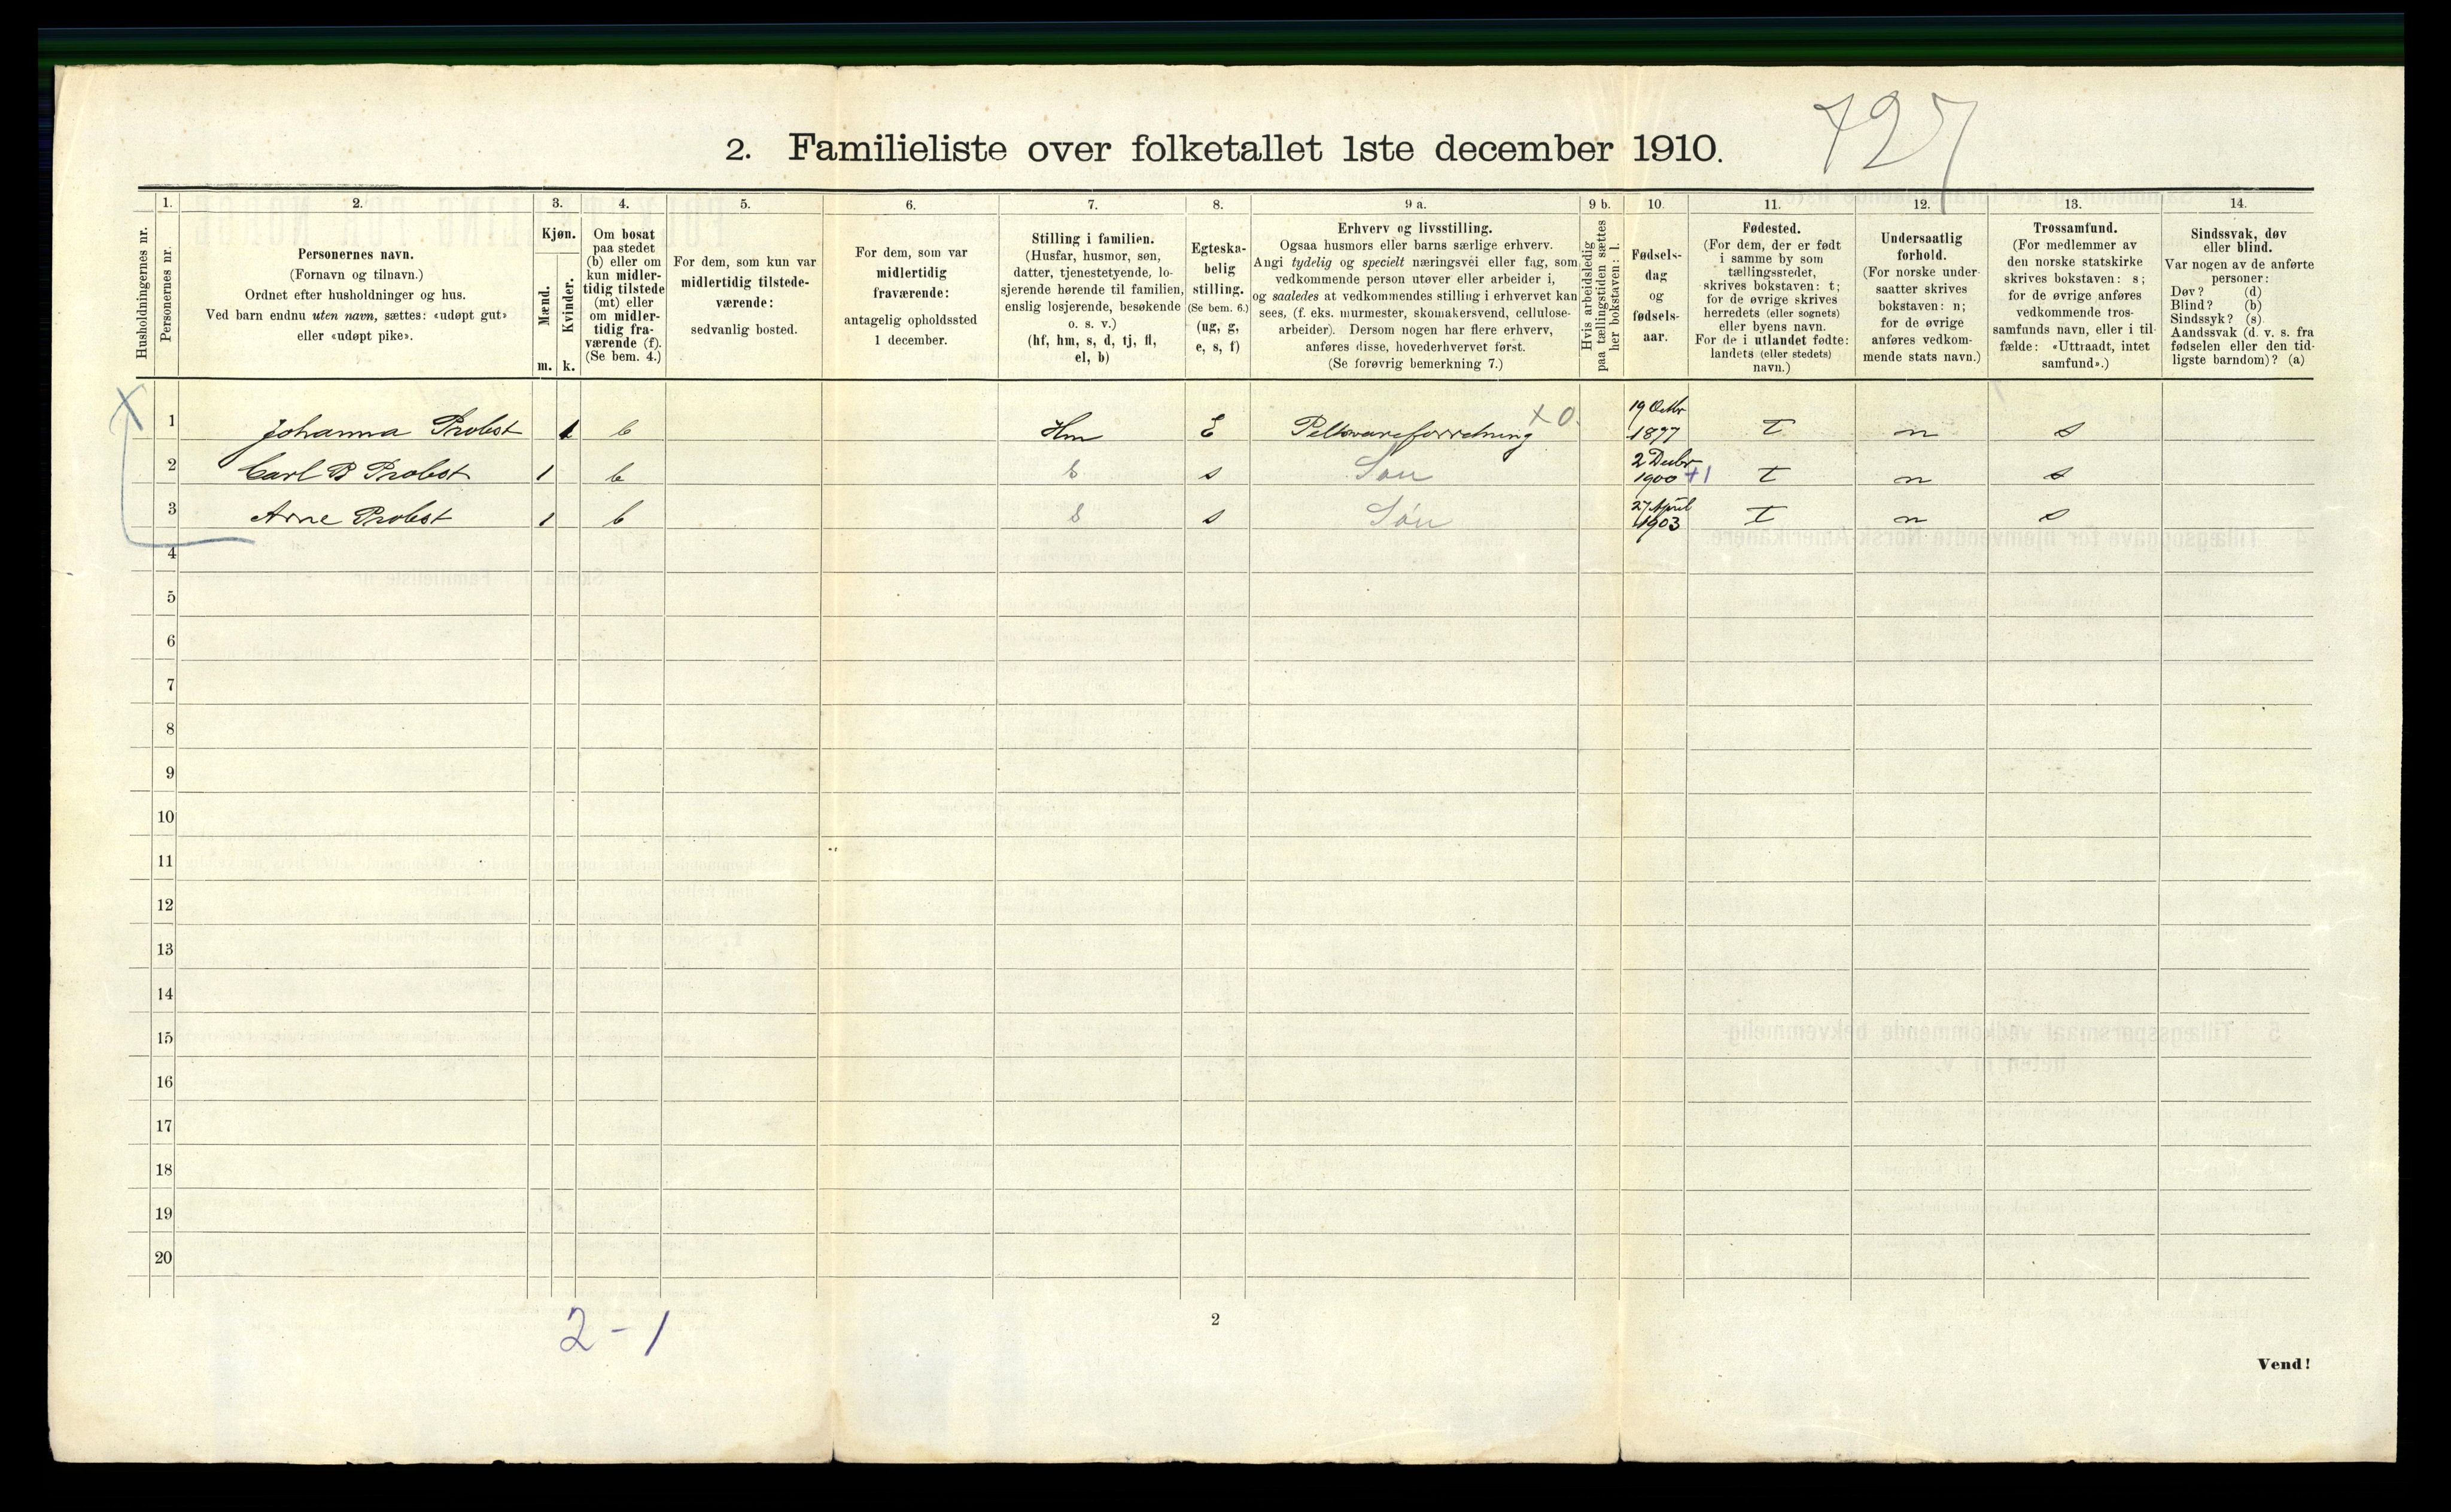 727
2. Familieliste over folketallet 1ste december 1910.
Husholdningernes nr.
1.
Personernes nr.
2.
Personernes navn.
(Fornavn og tilnavn.)
Ordnet efter husholdninger og hus.
Ved barn endnu uten navn, sættes: «udøpt gut»
eller «udøpt pike».
3.
Kjøn.
Mænd.
Kvinder.
m. k.
4.
Om bosat
paa stedet
(b) eller om
kun midler-
tidig tilstede
(mt) eller
om midler-
tidig fra-
værende (f).
(Se bem. 4.)
5.
For dem, som kun var
midlertidig tilstede-
værende:
sedvanlig bosted.
6.
For dem, som var
midlertidig
fraværende:
antagelig opholdssted
1 december.
7.
Stilling i familien.
(Husfar, husmor, søn,
datter, tjenestetyende, lo-
sjerende hørende til familien,
enslig losjerende, besøkende
o. s. v.)
(hf, hm, s, d, tj, fl,
el, b)
8.
Egteska-
belig
stilling.
(Se bem. 6.)
(ug, g,
e, s, f)
9 a.
Erhverv og livsstilling.
Ogsaa husmors eller barns særlige erhverv.
Angi tydelig og specielt næringsvei eller fag, som
vedkommende person utøver eller arbeider i,
og saaledes at vedkommendes stilling i erhvervet kan
sees, (f. eks. murmester, skomakersvend, cellulose-
arbeider). Dersom nogen har flere erhverv,
anføres disse, hovederhvervet først.
(Se forøvrig bemerkning 7.)
9 b.
Hvis arbeidsledig
paa tællingstiden sættes
her bokstaven: l.
10.
Fødsels-
dag
og
fødsels-
aar.
11.
Fødested.
(For dem, der er født
i samme by som
tællingsstedet,
skrives bokstaven: t;
for de øvrige skrives
herredets (eller sognets)
eller byens navn.
For de i utlandet fødte:
landets (eller stedets)
navn.)
12.
Undersaatlig
forhold.
(For norske under-
saatter skrives
bokstaven: n;
for de øvrige
anføres vedkom-
mende stats navn.)
13.
Trossamfund.
(For medlemmer av
den norske statskirke
skrives bokstaven: s;
for de øvrige anføres
vedkommende tros-
samfunds navn, eller i til-
fælde: «Uttraadt, intet
samfund».)
14.
Sindssvak, døv
eller blind.
Var nogen av de anførte
personer:
Døv? (d)
Blind? (b)
Sindssyk? (s)
Aandssvak (d. v. s. fra
fødselen eller den tid-
ligste barndom)? (a)
X 1 Johanna Probst 1 b Hm E Pelsvareforretning x 0. 19 Octbr 1877 t n s
2 Carl B Probst 1 b S s Søn 2 Decbr 1900 +1 t n s
3 Arne Probst 1 b S s Søn 27 April 1903 t n s
4
5
6
7
8
9
10
11
12
13
14
15
16
17
18
19
20
2 - 1
2
Vend!